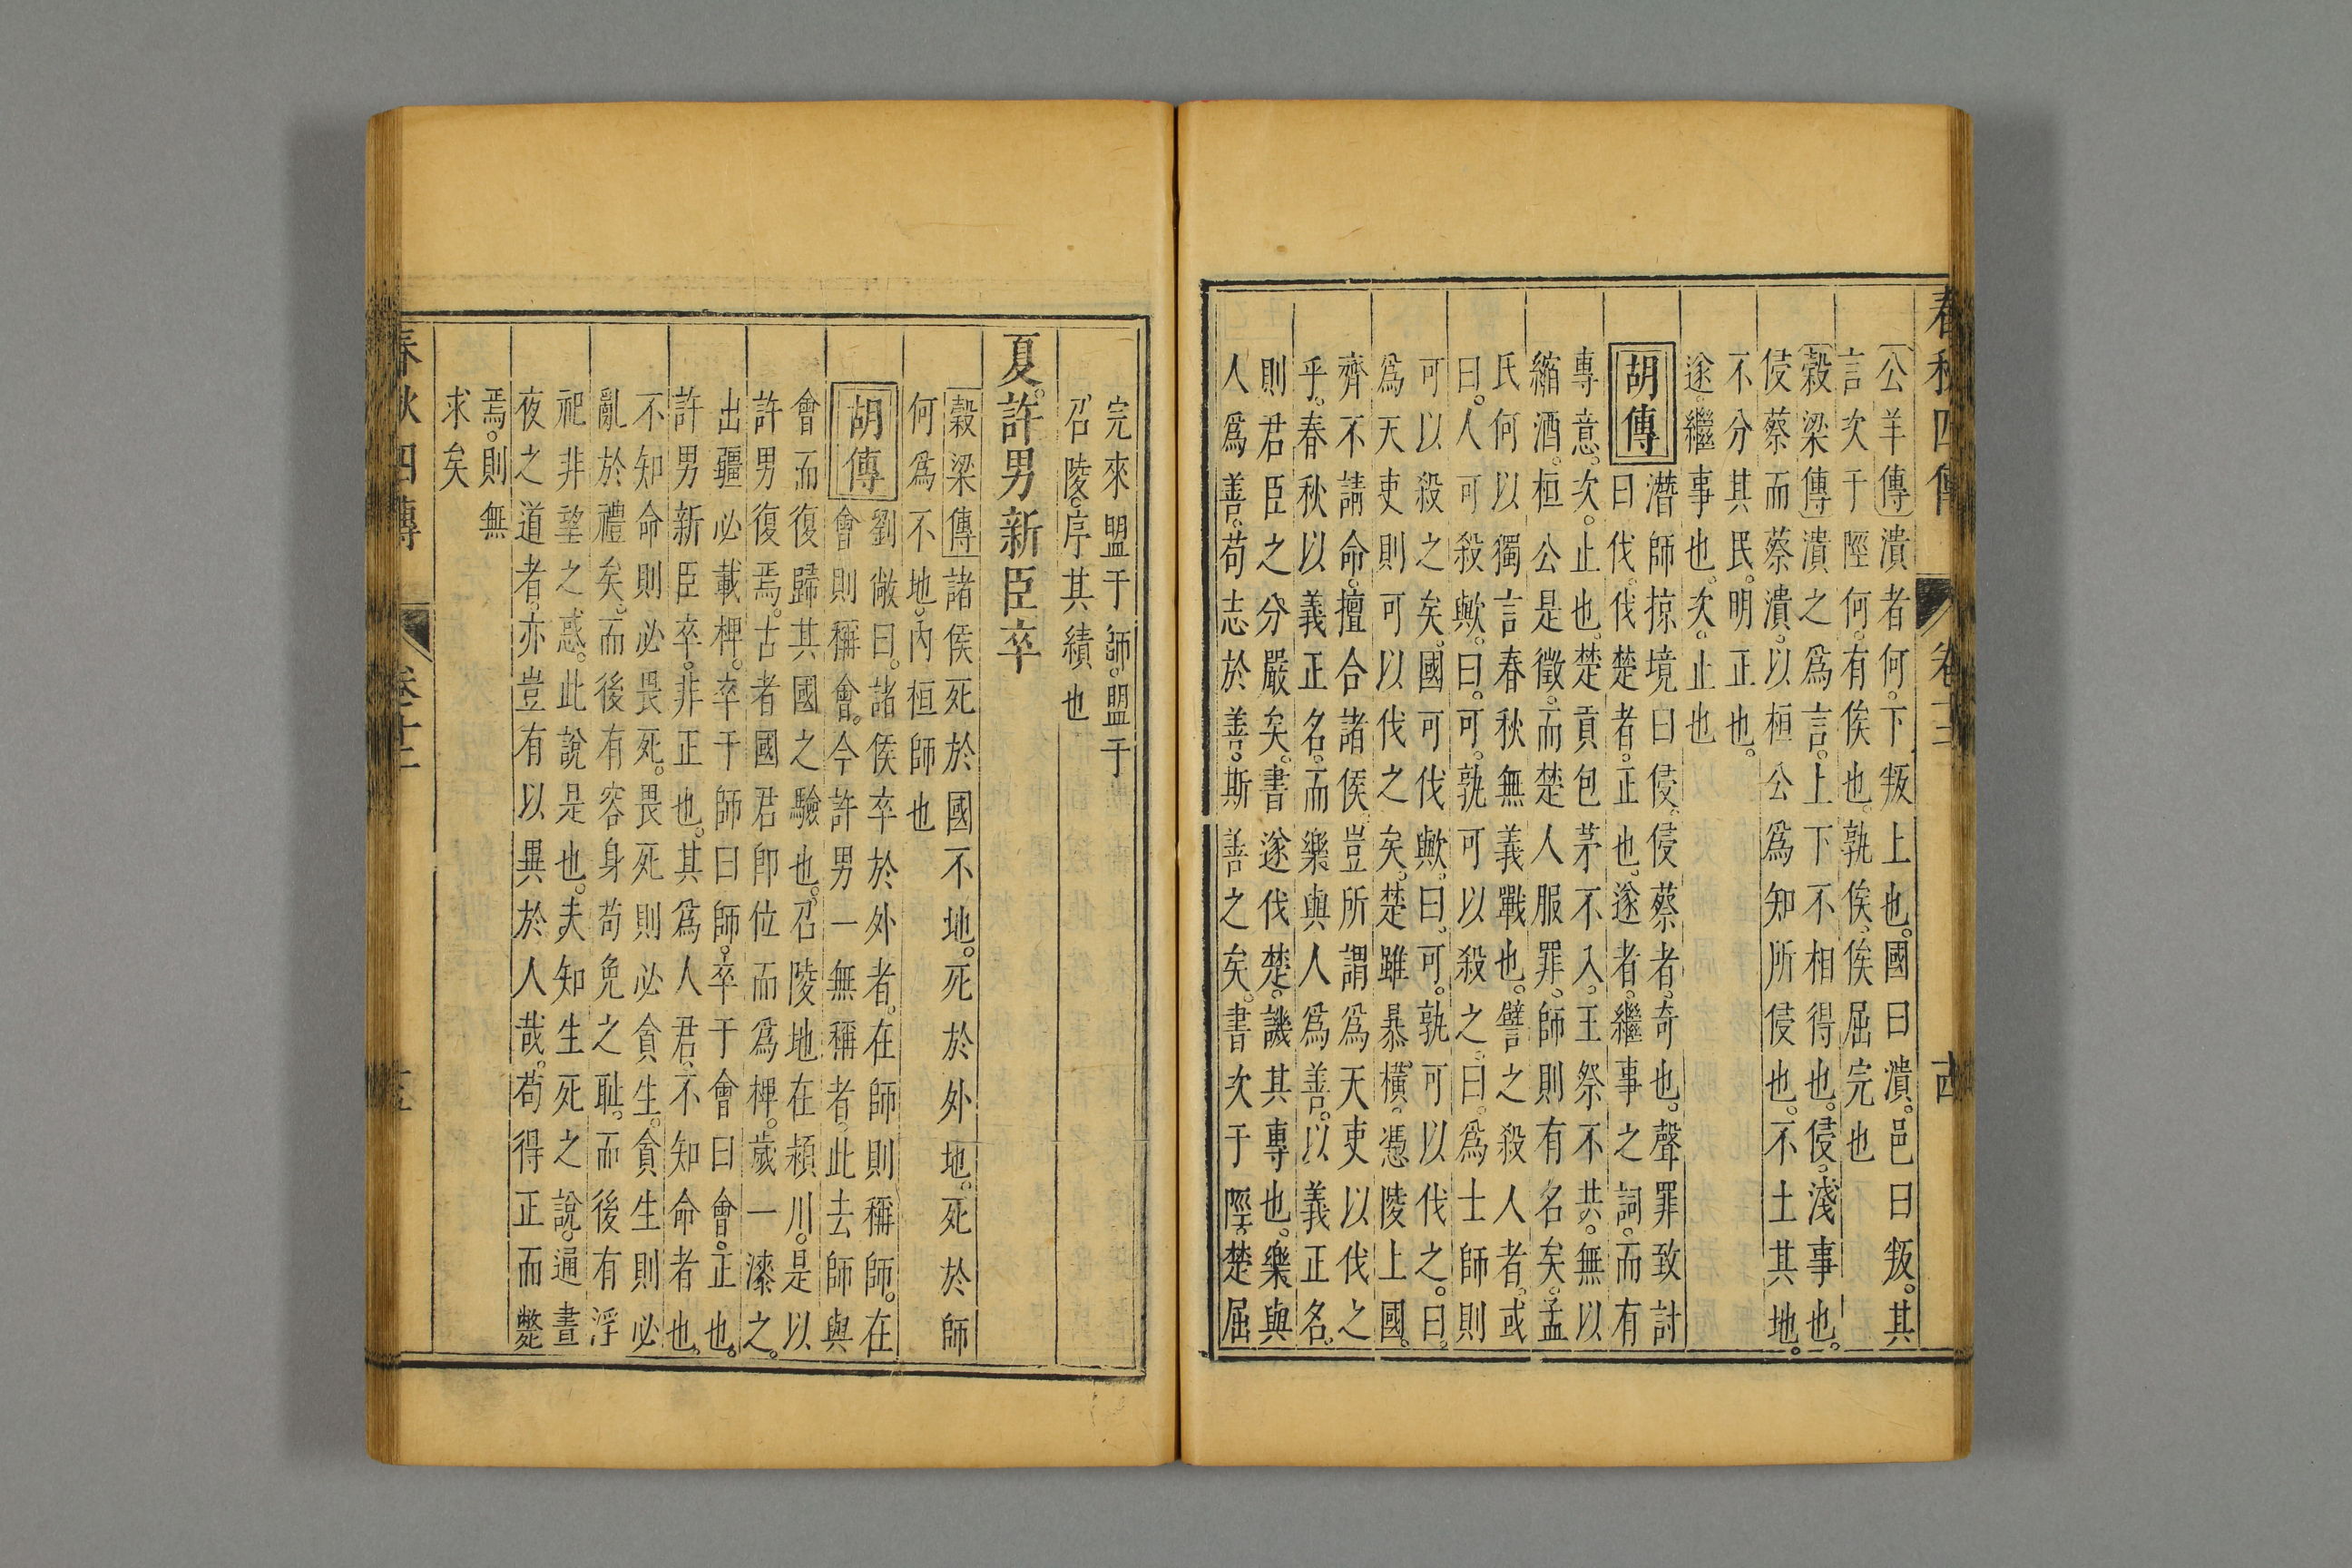 春秋四傳 卷十二 古
公羊傳潰者何。下叛上也。國曰潰。邑曰叛。其
言次于陘何。有俟也。孰俟。俟屈完也
穀梁傳潰之為言。上下不相得也。侵。淺事也。
侵蔡而蔡潰。以桓公為知所侵也。不土其地。
不分其民。明正也。
遂。繼事也。次。止也
胡傳
潛師掠境曰侵。侵蔡者。奇也。聲罪致討
曰伐。伐楚者。正也。遂者。繼事之詞。而有
專意。次。止也。楚貢包茅不入。王祭不共。無以
縮酒。桓公是徵。而楚人服罪。師則有名矣。孟
氏何以獨言春秋無義戰也。譬之殺人者。或
曰。人可殺歟。曰。可。孰可以殺之。曰。為士師則
可以殺之矣。國可伐歟。曰。可。孰可以伐之。曰。
為天吏則可以伐之矣。楚雖暴橫。憑陵上國。
齊不請命。擅合諸侯。豈所謂為天吏以伐之
乎。春秋以義正名。而樂與人為善。以義正名。
則君臣之分嚴矣。書遂伐楚。譏其專也。樂與
人為善。苟志於善。斯善之矣。書次于陘。楚屈
完來盟于師。盟于
召陵。序其績也
夏。許男新臣卒
穀梁傳諸侯死於國不地。死於外地。死於師
何為不地。內桓師也
胡傳
劉敞曰。諸侯卒於外者。在師則稱師。在
會則稱會。今許男一無稱者。此去師與
會而復歸其國之驗也。召陵地在潁川。是以
許男復焉。古者國君卽位而為椑。歲一漆之。
出疆必載椑。卒于師曰師。卒于會曰會。正也。
許男新臣卒。非正也。其為人君。不知命者也。
不知命則必畏死。畏死則必貪生。貪生則必
亂於禮矣。而後有容身苟免之恥。而後有浮
祀非望之惑。此說是也。夫知生死之說。通晝
夜之道者。亦豈有以異於人哉。苟得正而斃
焉。則無
求矣
春秋四傳 卷十二